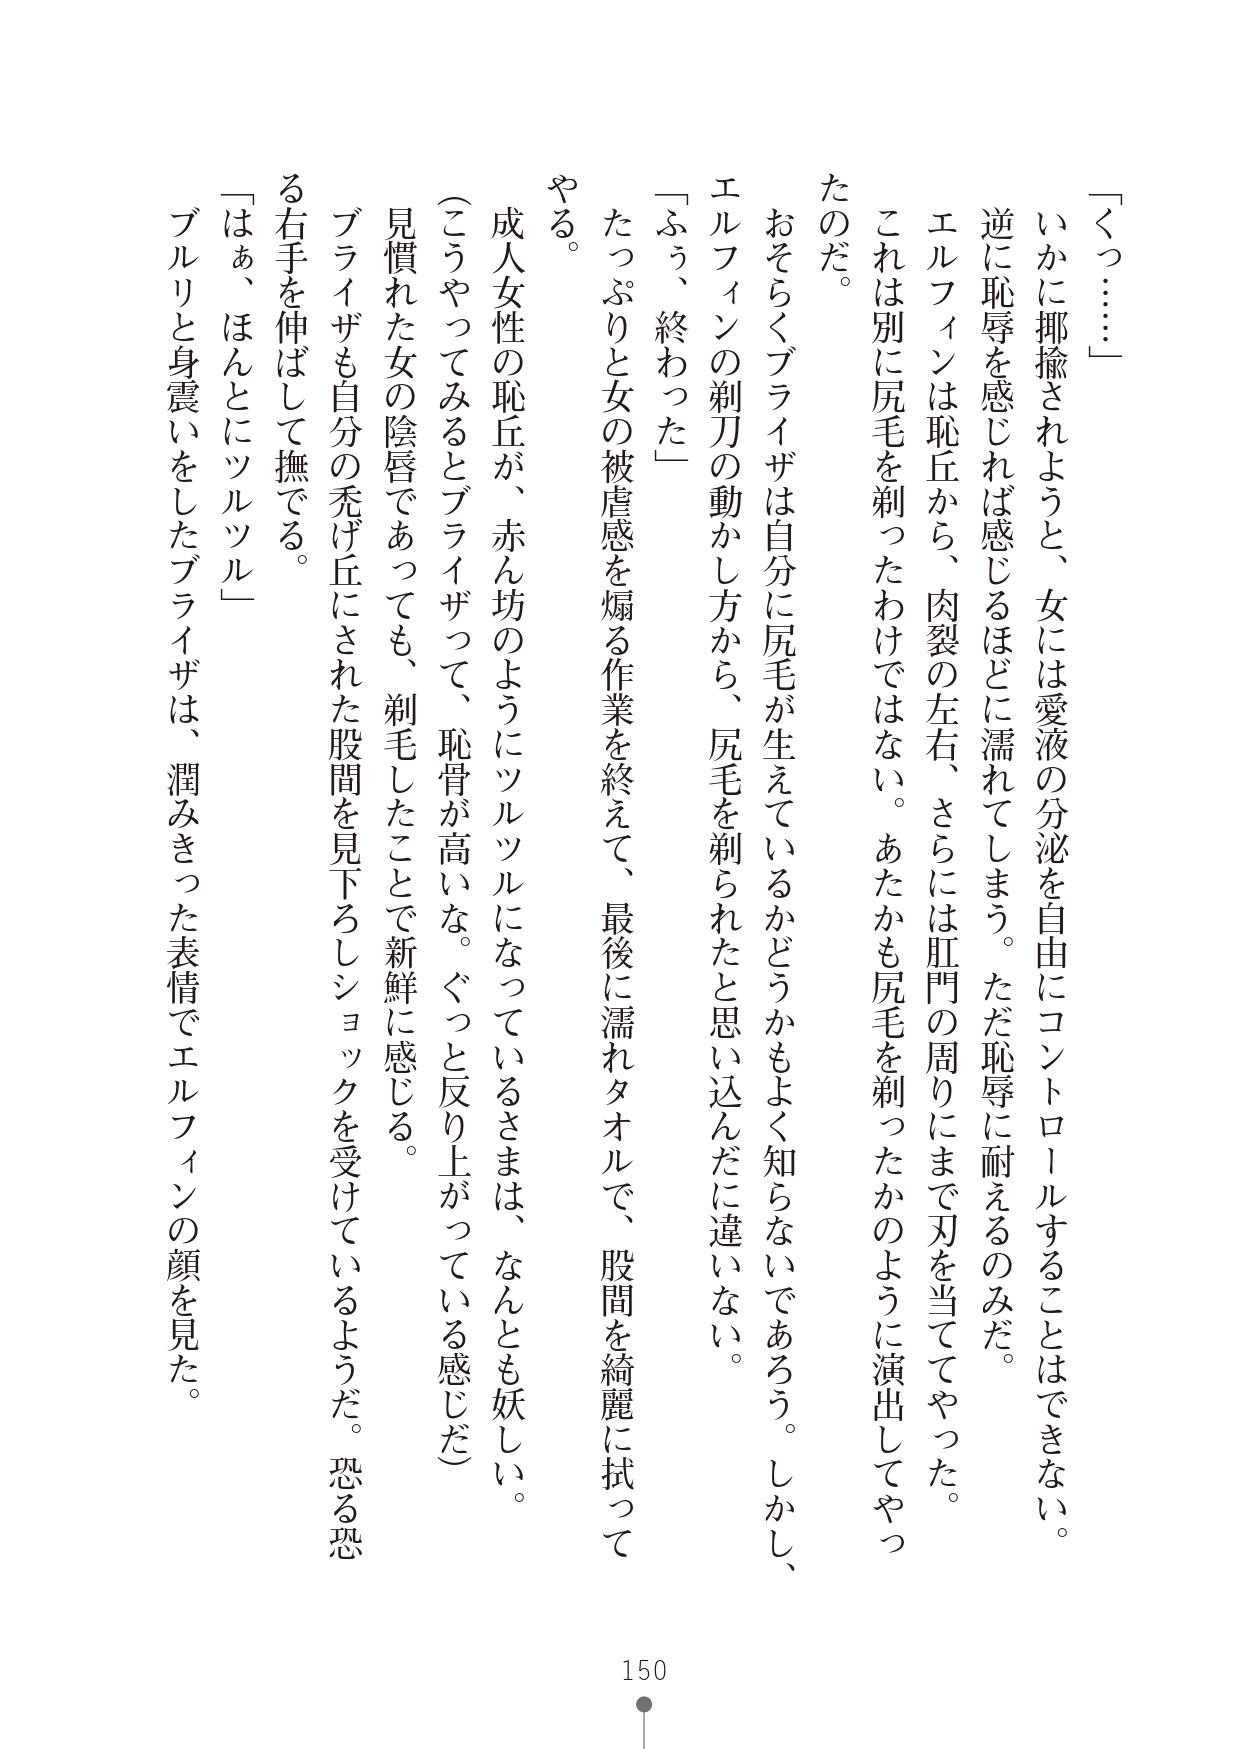 「くっ……」
いかに揶揄されようと、女には愛液の分泌を自由にコントロールすることはできない。
逆に恥辱を感じれば感じるほどに濡れてしまう。ただ恥辱に耐えるのみだ。
エルフィンは恥丘から、肉裂の左右、さらには肛門の周りにまで刃を当ててやった。
これは別に尻毛を剃ったわけではない。あたかも尻毛を剃ったかのように演出してやっ
たのだ。
おそらくブライザは自分に尻毛が生えているかどうかもよく知らないであろう。しかし、
エルフィンの剃刀の動かし方から、尻毛を剃られたと思い込んだに違いない。
「ふぅ、終わった」
たっぷりと女の被虐感を煽る作業を終えて、最後に濡れタオルで、股間を綺麗に拭って
やる。
成人女性の恥丘が、赤ん坊のようにツルツルになっているさまは、なんとも妖しい。
（こうやってみるとブライザって、恥骨が高いな。ぐっと反り上がっている感じだ）
見慣れた女の陰唇であっても、剃毛したことで新鮮に感じる。
ブライザも自分の禿げ丘にされた股間を見下ろしショックを受けているようだ。恐る恐
る右手を伸ばして撫でる。
「はぁ、ほんとにツルツル」
ブルリと身震いをしたブライザは、潤みきった表情でエルフィンの顔を見た。
150